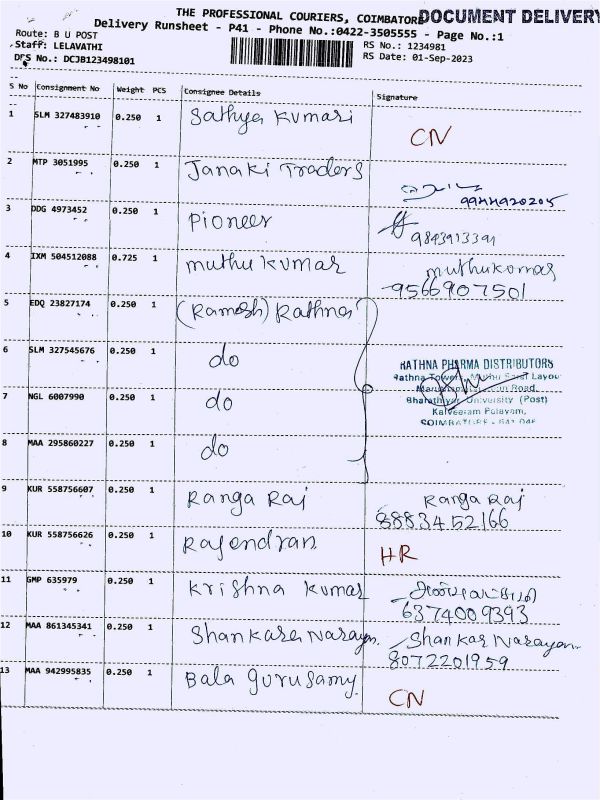 THE PROFESSIONAL COURIERS, COIMBATORE
DOCUMENT DELIVERY
Delivery Runsheet - P41 - Phone No.:0422-3505555 - Page No.:1
Route: B U POST
RS No.: 1234981
Staff: LELAVATHI
RS Date: 01-Sep-2023
DRS No.: DCJB123498101
S No Consignment No Weight PCS Consignee Details Signature
1 SLM 327483910 0.250 1 Sathya Kumari CN
2 MTP 3051995 0.250 1 Janaki Traders
9944920205
3 DDG 4973452 0.250 1 Pioneer
9843913391
4 IXM 504512088 0.725 1 muthu kumar muthukumar
9566907501
5 EDQ 23827174 0.250 1 (Ramesh) Rathna
6 SLM 327545676 0.250 1 do
RATHNA PHARMA DISTRIBUTORS
Rathna Towers, Muthu Layou
7 NGL 6007990 0.250 1 do
Road,
Bharathiyar University (Post)
Kalveeram Palayam,
COIMBATORE - 641 046
8 MAA 295860227 0.250 1 do
9 KUR 558756607 0.250 1 Ranga Raj Ranga Raj
8883452166
10 KUR 558756626 0.250 1 Rajendran HR
11 GMP 635979 0.250 1 Krishna Kumar
6374009393
12 MAA 861345341 0.250 1 Shankara Narayan. Shankar Narayan
8072201959
13 MAA 942995835 0.250 1 Bala Gurusamy CN